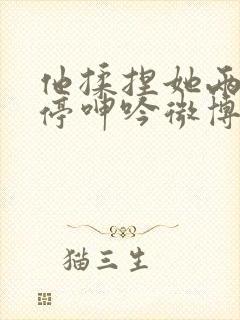 他揉捏她两
停呻吟微博
猫三生